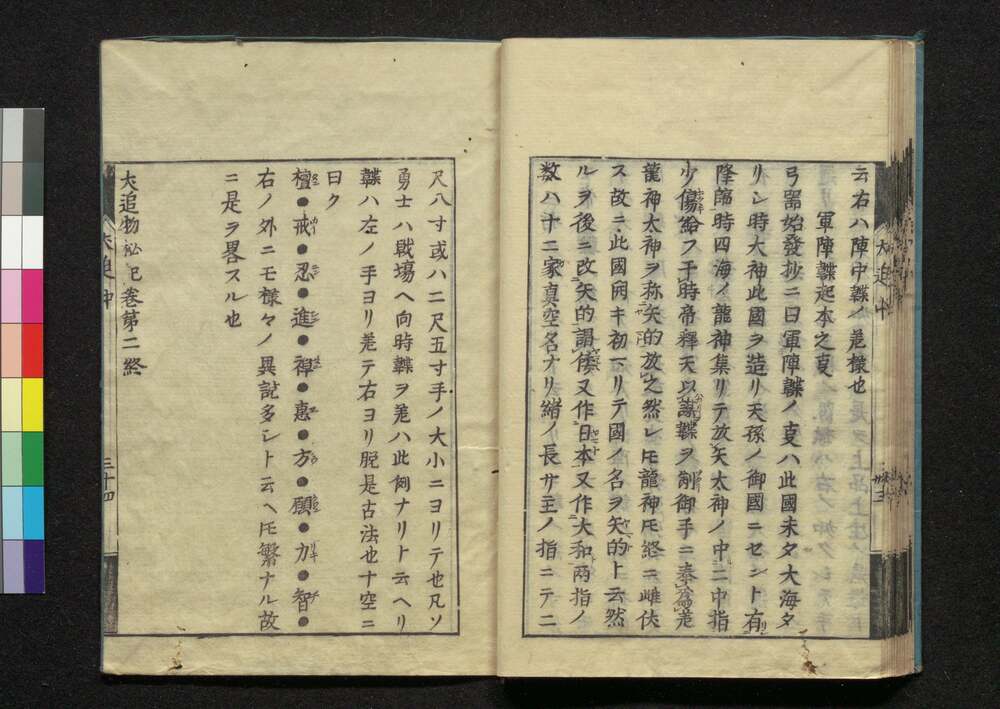 云右ハ陣中韘ノ差様也
軍陣韘起本之叓
弓器始發抄ニ曰軍陣韘ノ叓ハ此國未タ大海タ
リシ時大神此國ヲ造リ天孫ノ御國ニセント有
降臨時四海ノ龍神集リテ放矢太神ノ中ニ中指
少傷給フ于時帝釋天以韘ヲ削御手ニ奉差
龍神太神ヲ称矢的放之然レ𪜈龍神𪜈終ニ雌伏
ス故ニ此國開キ初下リテ國ノ名ヲ矢的ト云然
ルヲ後ニ改矢的謂倭又作日本又作大和両指ノ
数ハ十二家真空名ナリ緒ノ長サ主ノ指ニテ二
尺八寸或ハ二尺五寸手ノ大小ニヨリテ也凡ソ
勇士ハ戰場ヘ向時韘ヲ差ハ此例ナリト云ヘリ
韘ハ左ノ手ヨリ差テ右ヨリ脱是古法也十空ニ
曰ク
檀●戒●忍●進●禅●惠●方●願●力●智●
右ノ外ニモ様々ノ異説多シト云ヘ𪜈繁ナル故
ニ是ヲ畧スル也
犬追物秘記巻第二終
犬追中
三十四